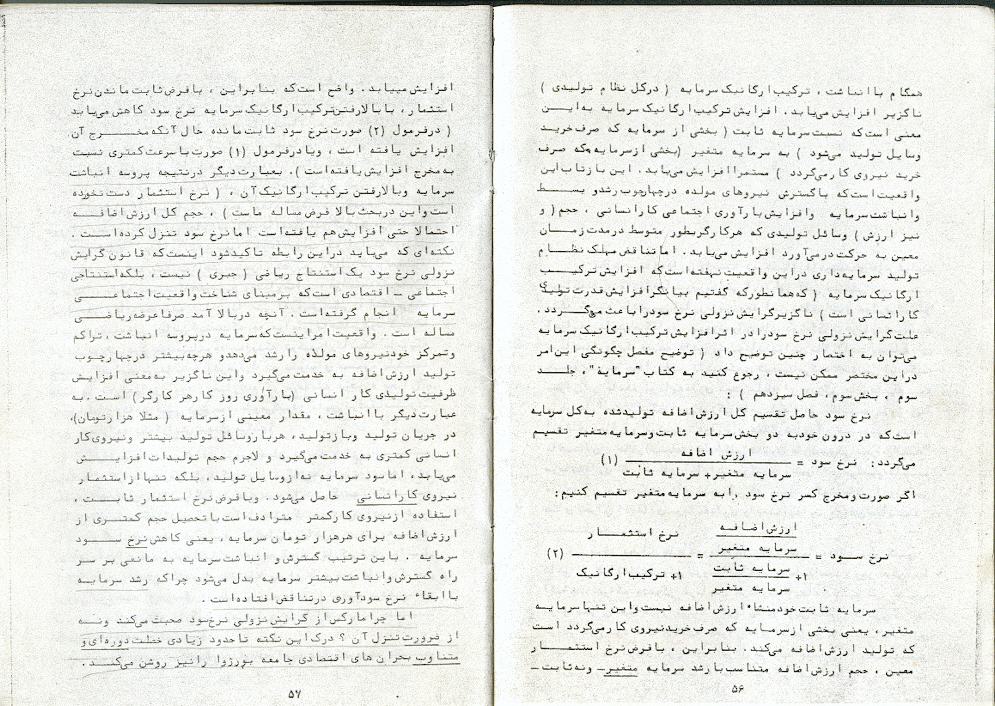 همگام با انباشت ، ترکیب ارگانیک سرمایه ( درکل نظام تولیدی )
ناگزیر افزایش می‌یابد . افزایش ترکیب ارگانیک سرمایه به ایـن
معنی است‌که نسبت سرمایه ثابت ( بخشی از سرمایه که صرف خرید
وسایل تولید می‌شود ) به سرمایه متغیر (بخشی از سرمایه که صرف
خرید نیروی کار می‌گردد ) مستمرا افزایش می‌یابد . این بازتاب این
واقعیت است‌که با گسترش نیروهای مولده درچهارچوب رشد و بسـط
و انباشت سرمایه و افزایش بارآوری اجتماعی کار انسانی ، حجم ( و
نیز ارزش ) وسائل تولیدی که هر کارگر بطور متوسط درمدت زمـان
معین به حرکت درمی‌آورد افزایش می‌یابد . اما تناقض مهلک نظـام
تولید سرمایه‌داری دراین واقعیت نهفته است‌که افزایش ترکیــب
ارگانیک سرمایه ( که همانطور که گفتیم بیانگر افزایش قدرت تولیدی
کار انسانی است ) ناگزیر گرایش نزولی نرخ سود را باعث می‌گـردد .
علت گرایش نزولی نرخ سود را در اثر افزایش ترکیب ارگانیک سرمایه
می‌توان به اختصار چنین توضیح داد ( توضیح مفصل چگونگی این امر
دراین مختصر ممکن نیست ، رجوع کنید به کتاب "سرمایه" ، جلـد
سوم ، بخش سوم ، فصل سیزدهم ) :
نرخ سود حاصل تقسیم کل ارزش اضافه تولیدشده به کل سرمایه
است‌که در درون خود به دو بخش سرمایه ثابت و سرمایه متغیر تقسیم
می‌گردد : نرخ سود = ارزش اضافه / سرمایه متغیر + سرمایه ثابت (۱)
اگر صورت و مخرج کسر نرخ سود را به سرمایه متغیر تقسیم کنیم :
نرخ سـود = ارزش اضافه / سرمایه متغیر / ۱+ سرمایه ثابت / سرمایه متغیر = نرخ استثمـار / ۱+ ترکیب ارگانیک (۲)
سرمایه ثابت خود منشاء ارزش اضافه نیست و این تنها سرمایه
متغیر ، یعنی بخشی از سرمایه که صرف خرید نیروی کار می‌گردد است
که تولید ارزش اضافه می‌کند . بنابراین ، با فرض نرخ استثمــار
معین ، حجم ارزش اضافه متناسب با رشد سرمایه متغیر ـ و نه ثابت ـ
۵۶
افزایش می‌یابد . واضح است‌که بنابراین ، با فرض ثابت ماندن نرخ
استثمار ، با بالا رفتن ترکیب ارگانیک سرمایه نرخ سود کاهش می‌یابد
( درفرمول (۲) صورت نرخ سود ثابت مانده حال آنکه مخــرج آن
افزایش یافته است ، و یا درفرمول (۱) صورت با سرعت کمتری نسبت
به مخرج افزایش یافته است ) . بعبارت دیگر درنتیجه پروسه انباشت
سرمایه و بالا رفتن ترکیب ارگانیک آن ، ( نرخ استثمار دست نخورده
است و این در بحث بالا فرض مساله ماست ) ، حجم کل ارزش اضافــه
احتمالا حتی افزایش هم یافته است اما نرخ سود تنزل کرده اسـت .
نکته‌ای که می‌باید دراین رابطه تاکید شود اینست که قانون گرایش
نزولی نرخ سود یک استنتاج ریاضی ( جبری ) نیست ، بلکه استنتاجی
اجتماعی ـ اقتصادی است‌که برمبنای شناخت واقعیت اجتماعــی
سرمایه انجام گرفته است . آنچه دربالا آمد صرفا عرضه ریاضــی
مساله است . واقعیت امر اینست که سرمایه درپروسه انباشت ، تراکم
و تمرکز خود نیروهای مولده را رشد می‌دهد و هرچه بیشتر درچهارچوب
تولید ارزش اضافه به خدمت می‌گیرد و این ناگزیر به معنی افزایش
ظرفیت تولیدی کار انسانی (بارآوری روز کار هر کارگر) است . به
عبارت دیگر با انباشت ، مقدار معینی از سرمایه ( مثلا هزار تومان) ،
در جریان تولید و بازتولید ، هربار وسائل تولید بیشتر و نیروی کار
انسانی کمتری به خدمت می‌گیرد و لاجرم حجم تولیدات افزایــش
می‌یابد ، اما سود سرمایه نه از وسایل تولید ، بلکه تنها از استثمار
نیروی کار انسانی حاصل می‌شود . و با فرض نرخ استثمار ثابــت ،
استفاده از نیروی کار کمتر مترادف است با تحصیل حجم کمتــری از
ارزش اضافه برای هر هزار تومان سرمایه ، یعنی کاهش نرخ ســود
سرمایه . باین ترتیب گسترش و انباشت سرمایه به مانعی بر سـر
راه گسترش و انباشت بیشتر سرمایه بدل می‌شود چرا که رشد سرمایـه
با ابقاء نرخ سودآوری درتناقض افتاده است .
اما چرا مارکس از گرایش نزولی نرخ سود صحبت می‌کند و نــه
از ضرورت تنزل آن ؟ درک این نکته تا حدود زیادی خصلت دوره‌ای و
متناوب بحران های اقتصادی جامعه بورژوا را نیز روشن می‌کنـد .
۵۷